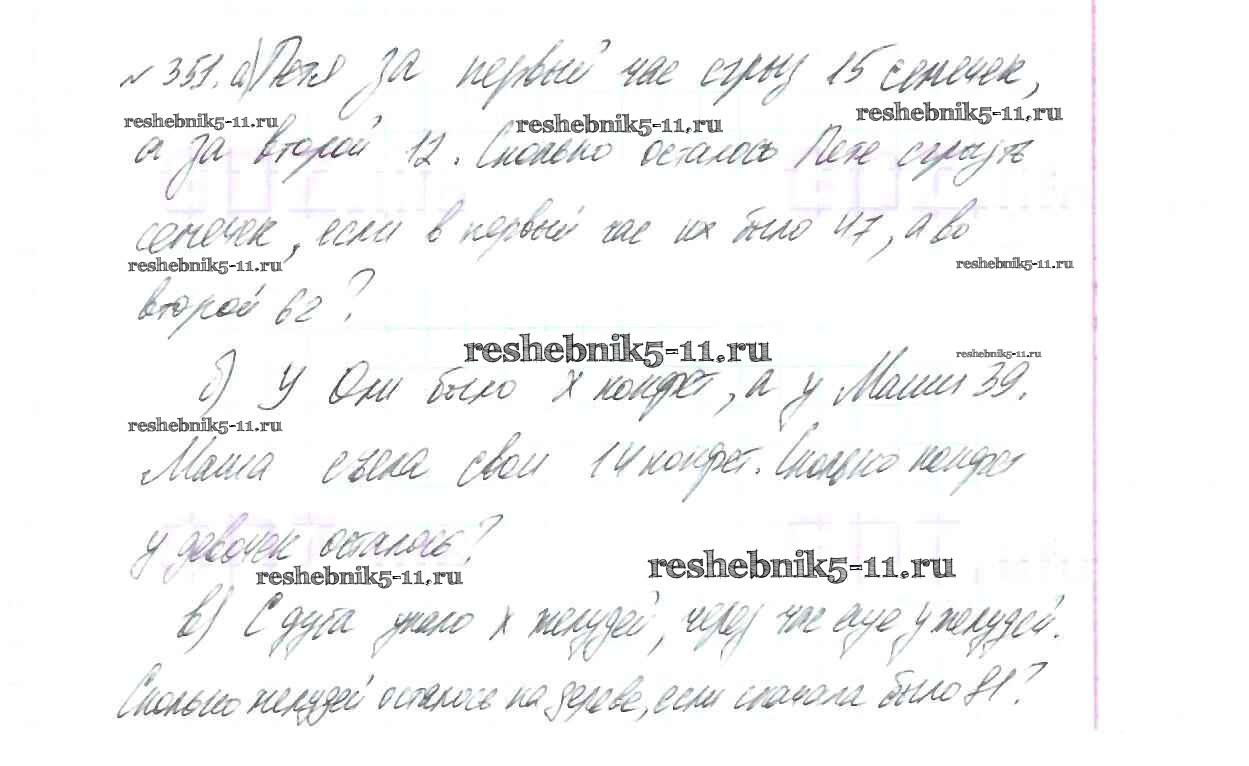 № 351. а) Петя за первый час сгрыз 15 семечек,
reshebnik5-11.ru reshebnik5-11.ru reshebnik5-11.ru
а за второй 12. Сколько осталось Пете сгрызть
семечек, если в первый час их было 47, а во
reshebnik5-11.ru reshebnik5-11.ru
второй 62?
reshebnik5-11.ru reshebnik5-11.ru
б) У Они было х конфет, а у Маши 39.
reshebnik5-11.ru
Маша съела свои 14 конфет. Сколько конфет
у девочек осталось?
reshebnik5-11.ru reshebnik5-11.ru
в) С дуба упало х желудей, через час еще у желудей.
Сколько желудей осталось на дереве, если сначала было 81?